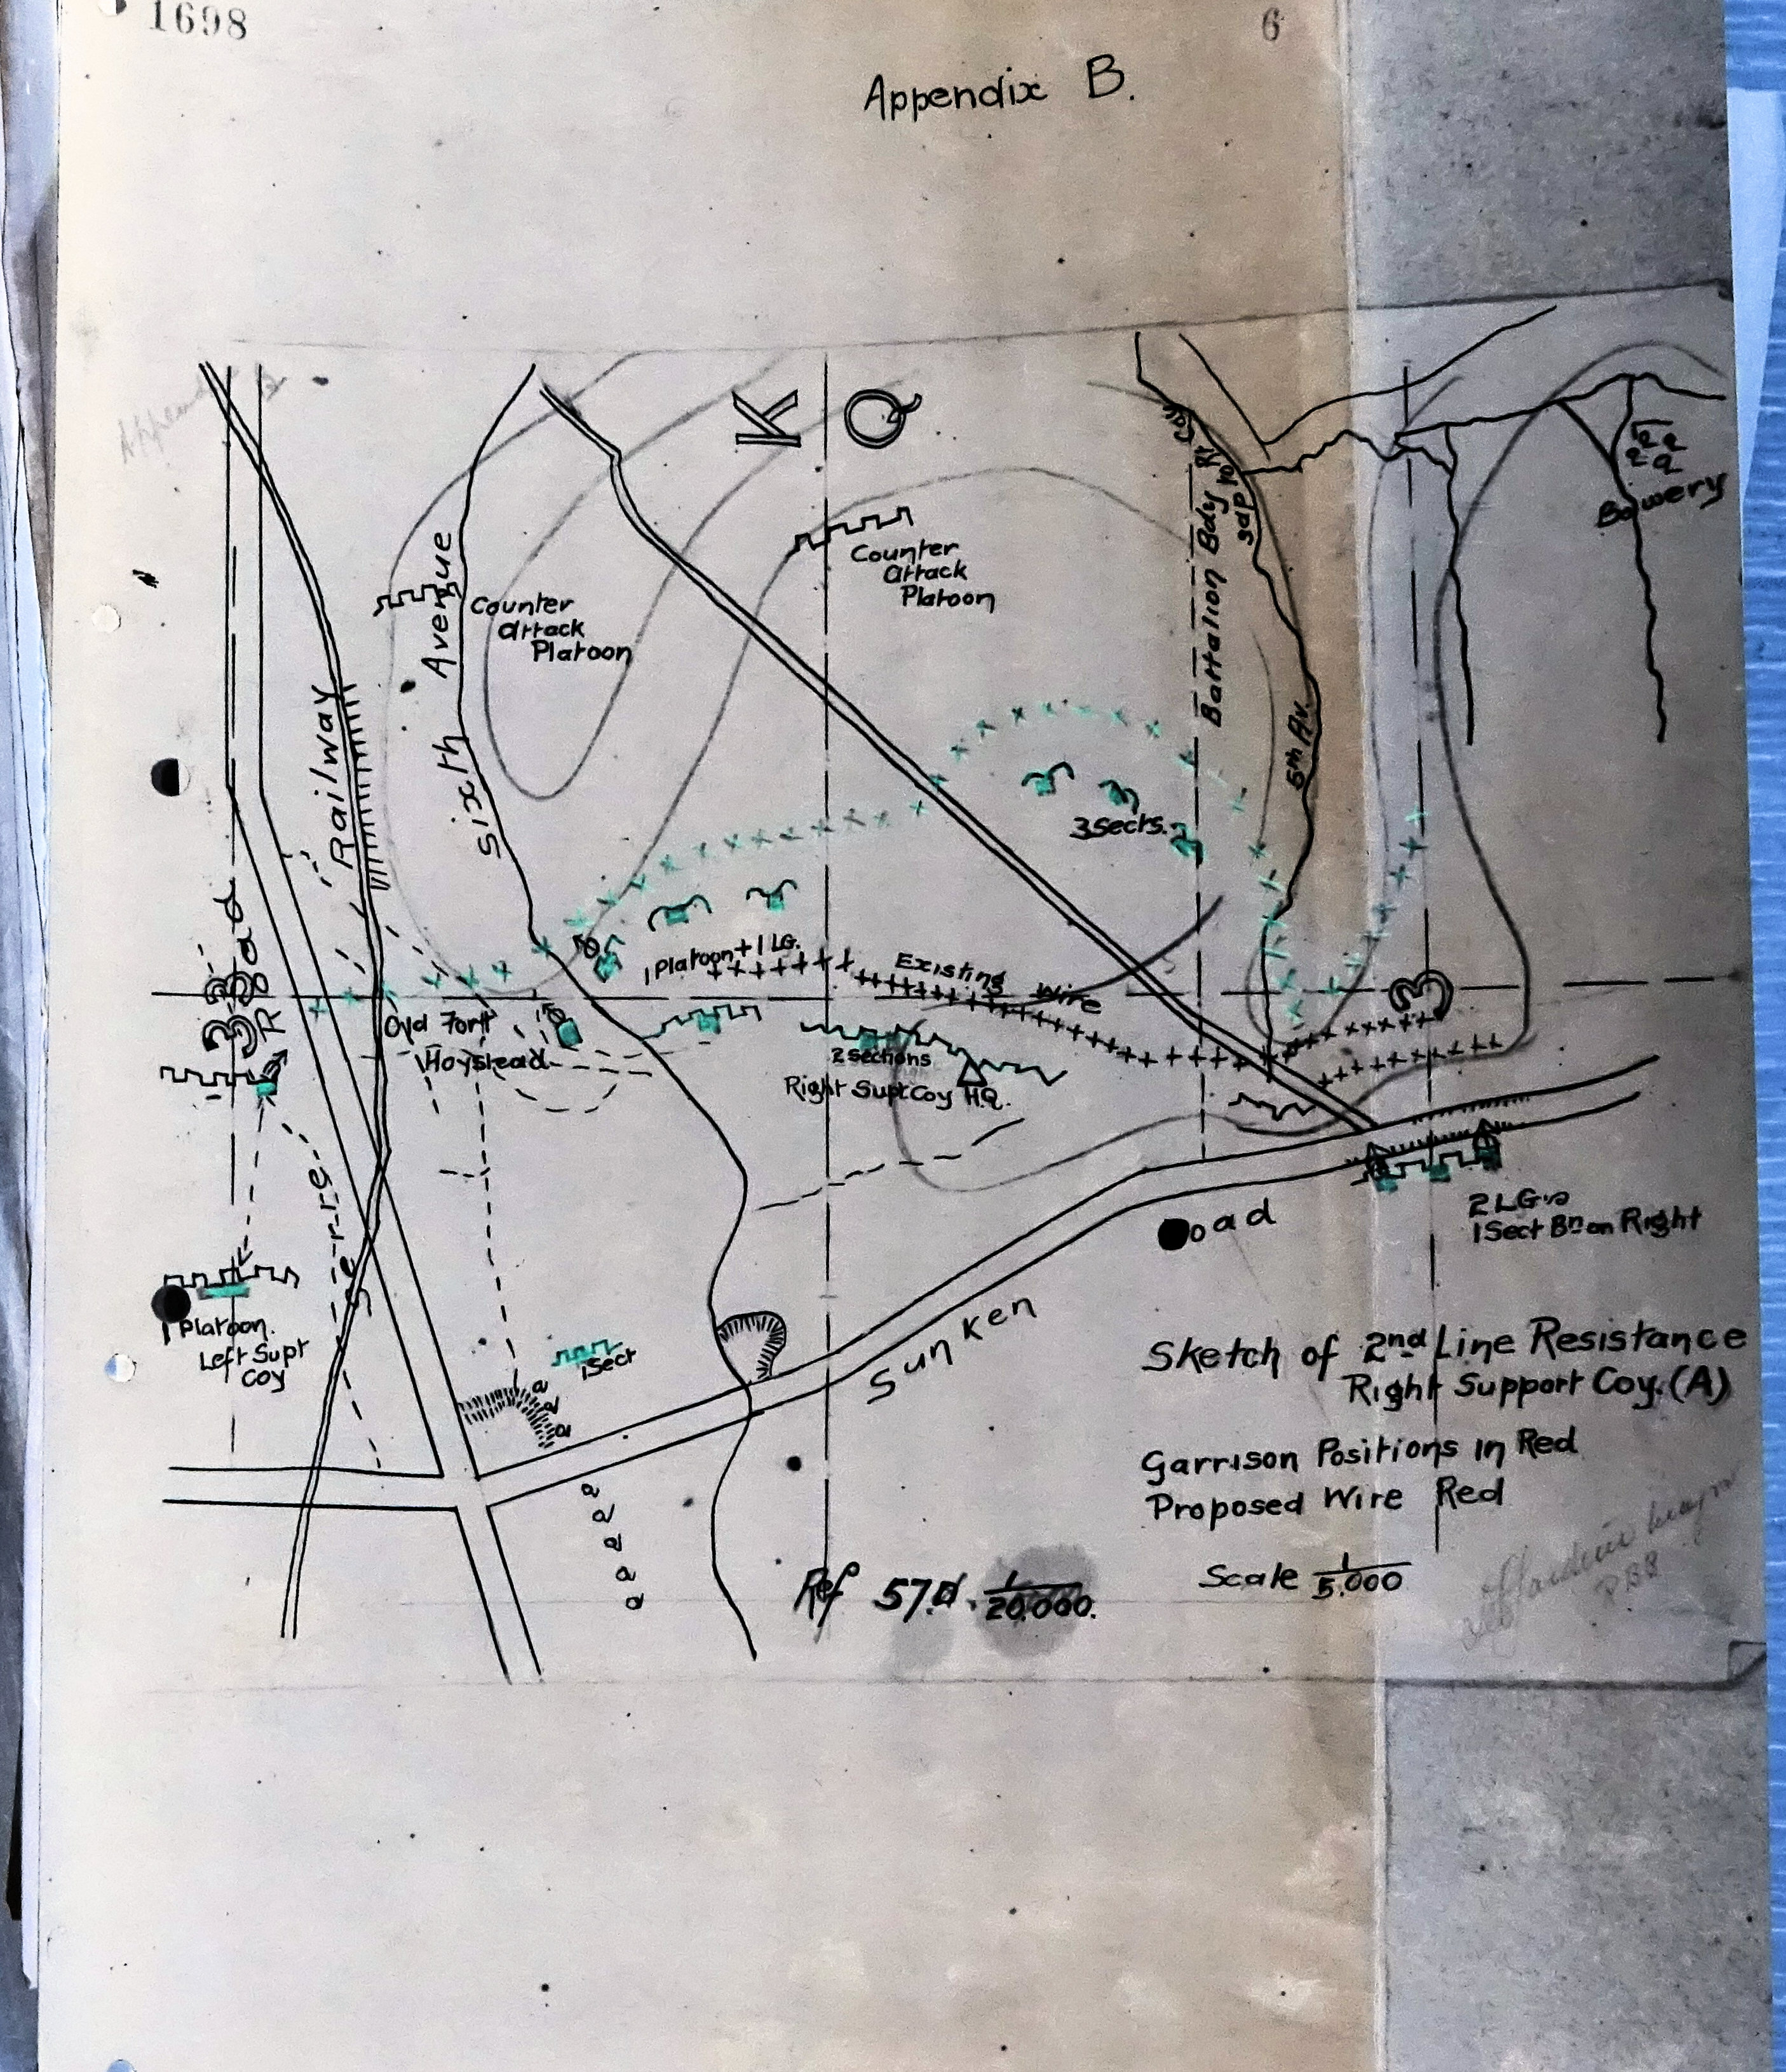 1698
6
Appendix B.
K
Q
Rt Coy
Battalion Bdy
5th Av.
Bowery
Counter
attack
Platoon
Counter
attack
Platoon
Sixth Avenue
Railway
3 Sects.
1 Platoon + 1 LG.
Existing Wire
33
3
Road
Fort
Hoystead
2 Sections
Right Supt Coy HQ.
Serre
Sunken
oad
2 LGs
1 Sect Bn on Right
1 Platoon.
Left Supt
Coy
1 Sect
Sketch of 2nd Line Resistance
Right Support Coy. (A)
Garrison Positions in Red
Proposed Wire Red
Scale 1/5.000
Ref 57.d. 1/20.000.